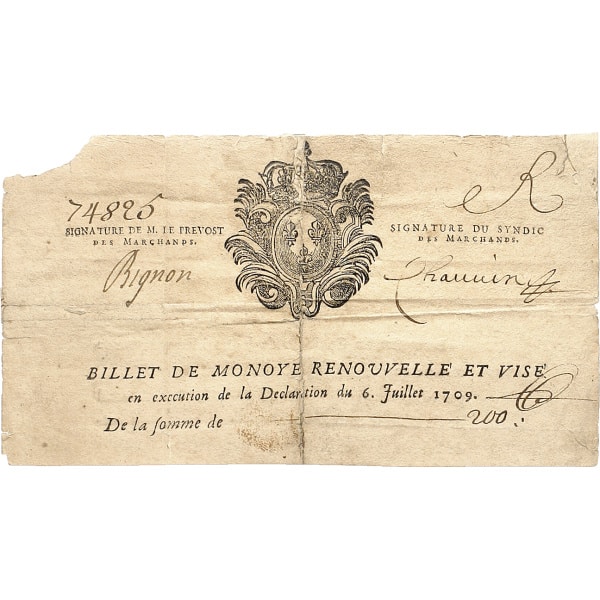 74825
R
SIGNATURE DE M. LE PREVOST
DES MARCHANDS.
SIGNATURE DU SYNDIC
DES MARCHANDS.
Bignon
Chauvin
BILLET DE MONOYE RENOUVELLÉ ET VISÉ
en execution de la Declaration du 6. Juillet 1709.
De la somme de 200